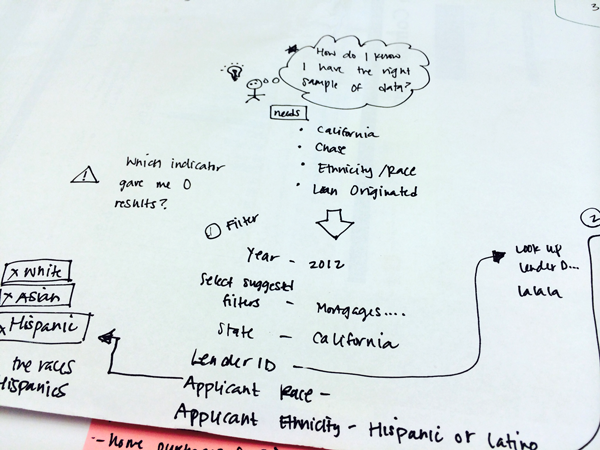 3
How do I know
I have the right
sample of data?
needs
• California
• Chase
• Ethnicity/Race
• Loan Originated
Which indicator
gave me 0
results?
1 Filter
Year - 2012
Select suggested
filters - Mortgages....
State - California
Lender ID -
Applicant Race -
Applicant Ethnicity - Hispanic or Latino
2
Look up
lender D...
lalala
x White
x Asian
x Hispanic
the races
Hispanics
- home